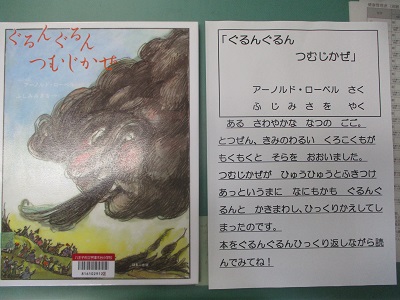 ぐるんぐるん
つむじかぜ
「ぐるんぐるん
つむじかぜ」
アーノルド・ローベル さく
ふ じ み さ を や く
ある さわやかな なつの ごご。
とつぜん、きみのわるい くろこくもが
もくもくと そらを おおいました。
つむじかぜが ひゅうひゅうとふきつけ
あっというまに なにもかも ぐるんぐ
るんと かきまわし、ひっくりかえしてし
まったのです。
本をぐるんぐるんひっくり返しながら読
んでみてね!